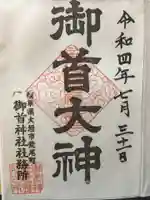 令和四年七月三十一日
御首大神
岐阜県大垣市荒尾町
御首神社社務所